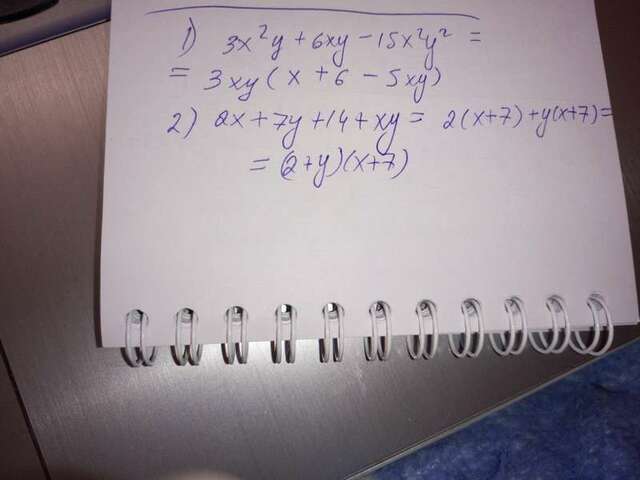 1) 3x²y + 6xy - 15x²y² =
= 3xy(x + 6 - 5xy)
2) 2x + 7y + 14 + xy = 2(x+7) + y(x+7) =
= (2+y)(x+7)